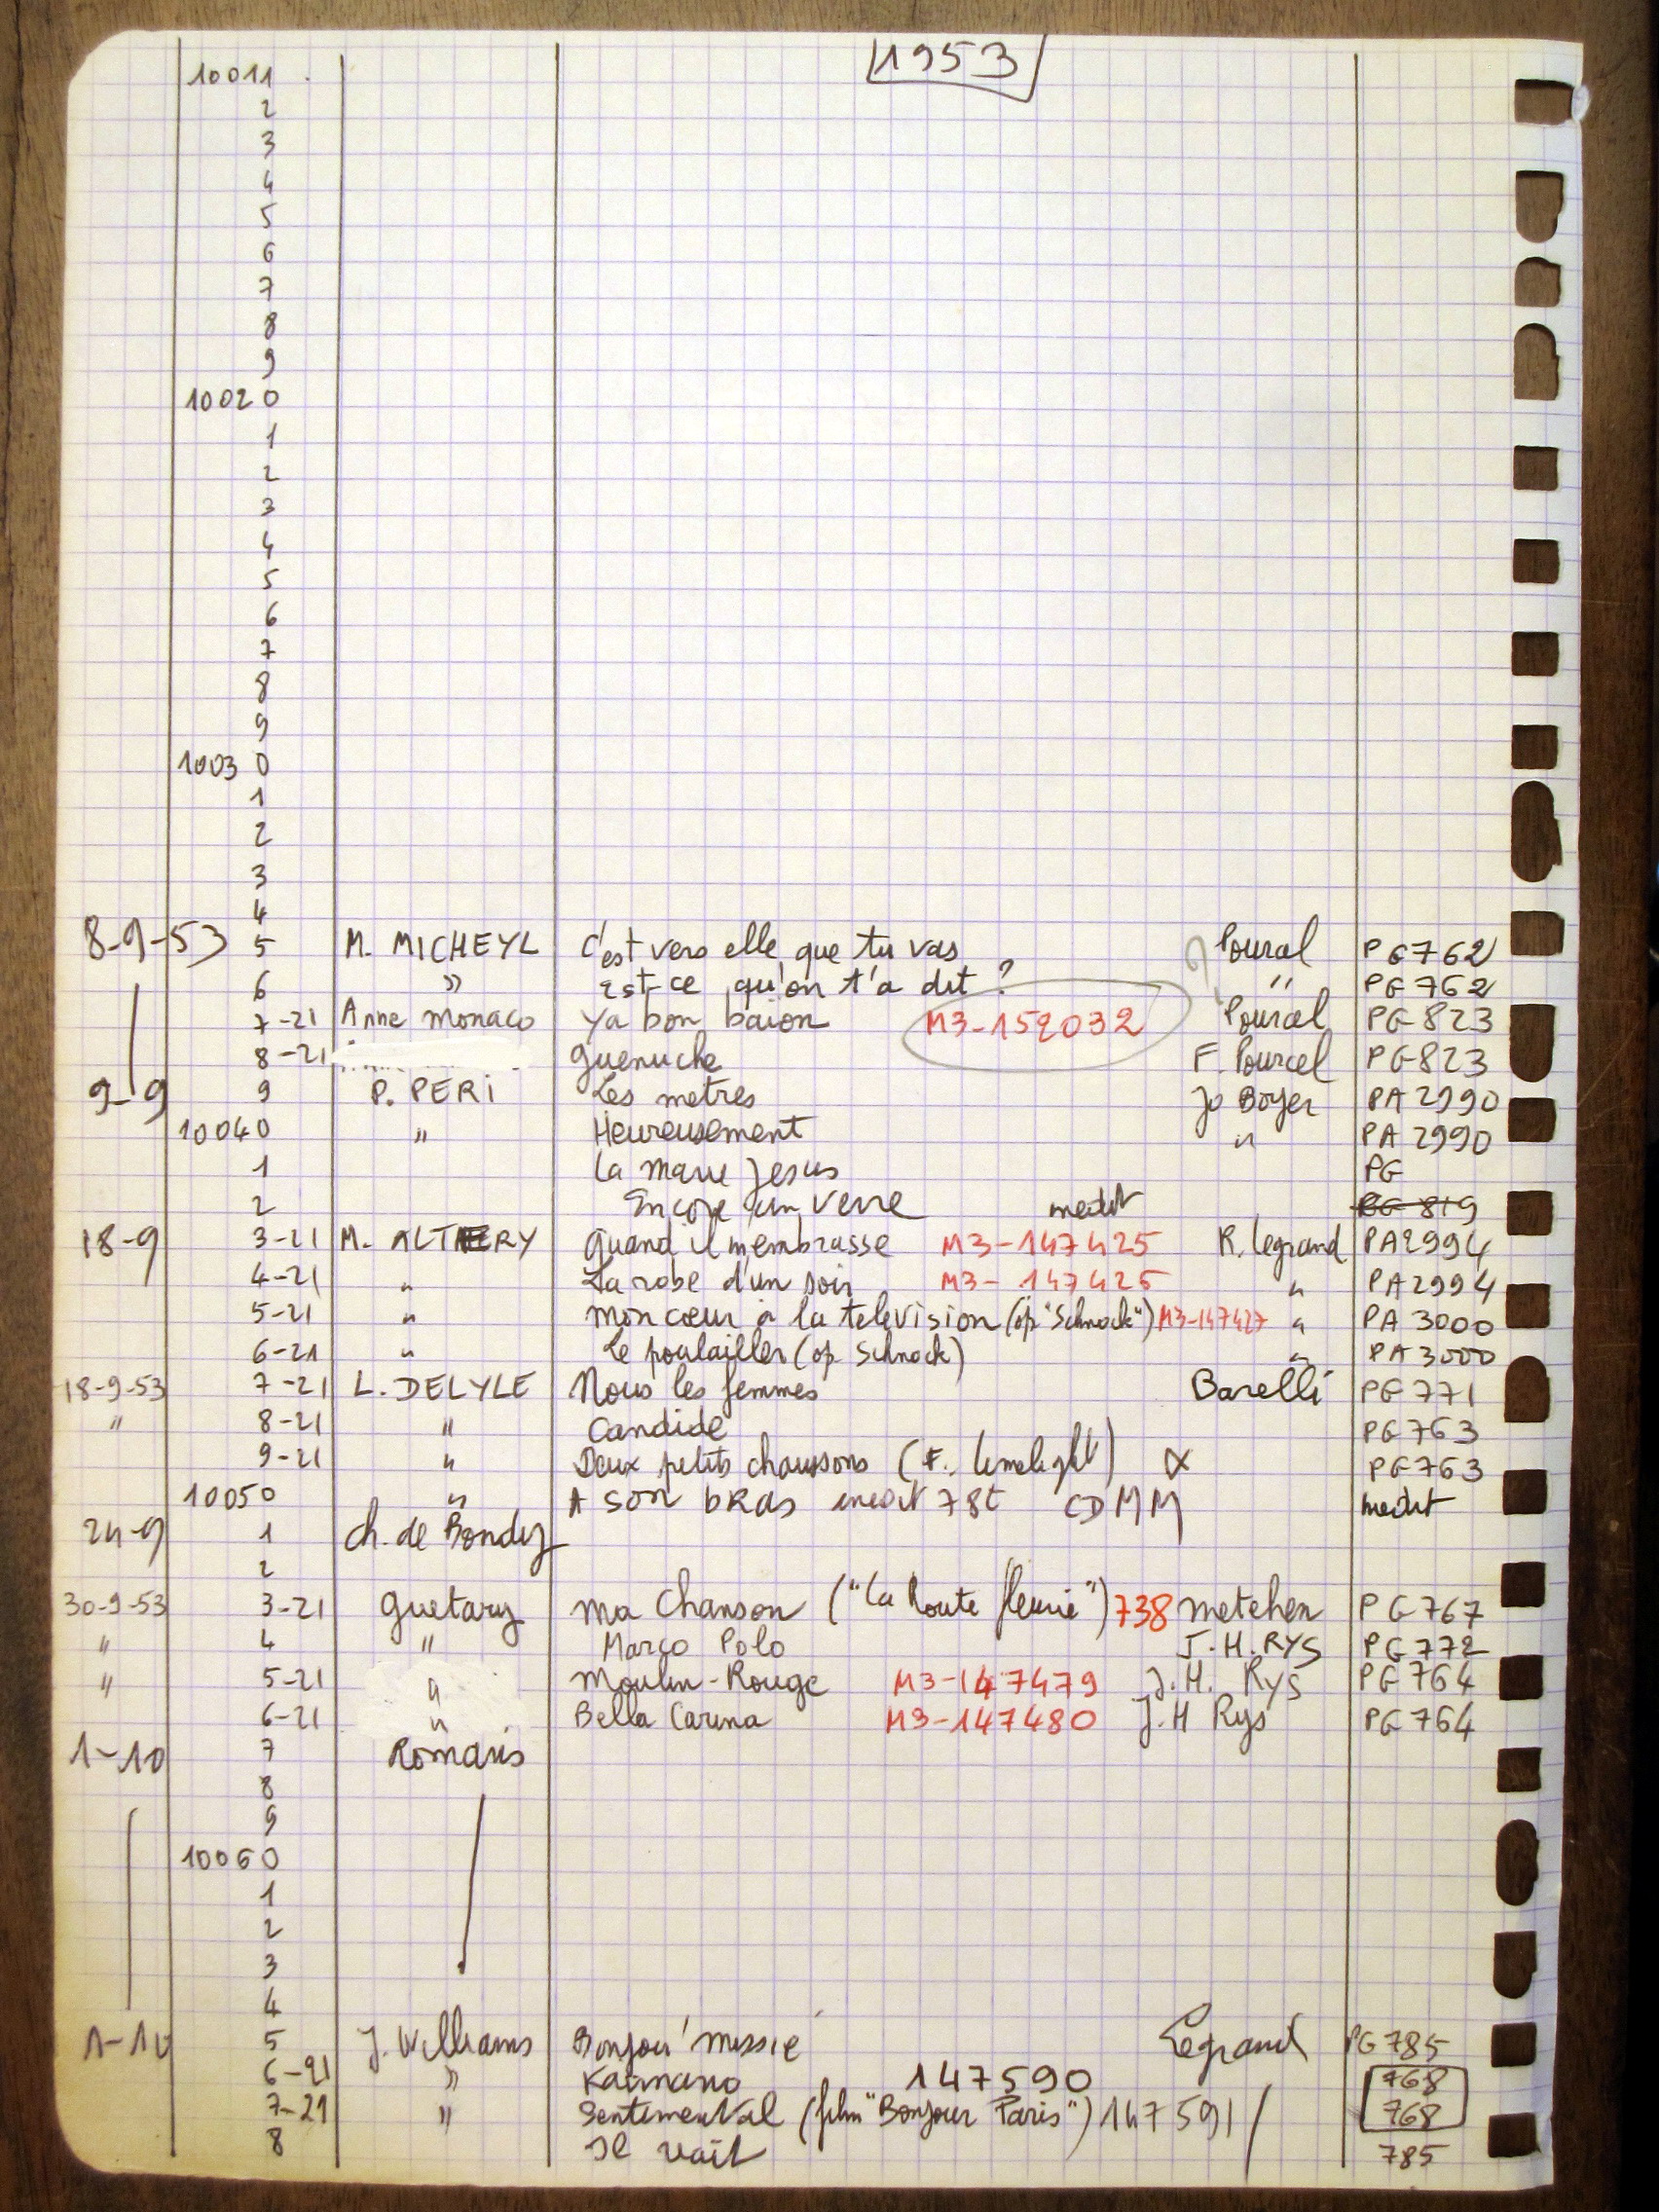 1953
10011
2
3
4
5
6
7
8
9
10020
1
2
3
4
5
6
7
8
9
10030
1
2
3
4
8-9-53 5 M. MICHEYL C'est vers elle que tu vas Pourcel PG762
6 " Est-ce qu'on t'a dit ? " PG762
7-21 Anne Monaco Ya bon baïon M3-152032 Pourcel PG823
8-21 Guenuche F. Pourcel PG823
9-9 9 P. PERI Les metres Jo Boyer PA2990
10040 " Heureusement " PA 2990
1 La Marie Jesus PG
2 Encore un verre inedit PG 819
18-9 3-21 M. ALTHERY Quand il m'embrasse M3-147425 R. Legrand PA2994
4-21 " La robe d'un soir M3-147426 " PA2994
5-21 " mon cœur à la television (op "Schnock") M3-147427 " PA 3000
6-21 " Le poulailler (op. Schnock) " PA3000
18-9-53 7-21 L. DELYLE Nous les femmes Barelli PG771
" 8-21 " Candide PG763
9-21 " Deux petits chaussons (F. limelight) PG763
10050 " A SON BRAS inedit 78t CDMM inedit
24-9 1 Ch. de Bondy
2
30-9-53 3-21 Guetary Ma Chanson ("La Route fleurie") 738 Metehen PG767
" 4 " Marco Polo J.H.RYS PG772
" 5-21 " Moulin-Rouge M3-147479 J.H. RYS PG764
6-21 " Bella Carina M3-147480 J.H Rys PG764
1-10 7 Romans
8
9
10060
1
2
3
4
1-10 5 J. Williams Bonjou' missié Legrand PG785
6-21 " Kaïmano 147590 768
7-21 " Sentimental (film "Bonjour Paris") 147591 768
8 Il vait 785